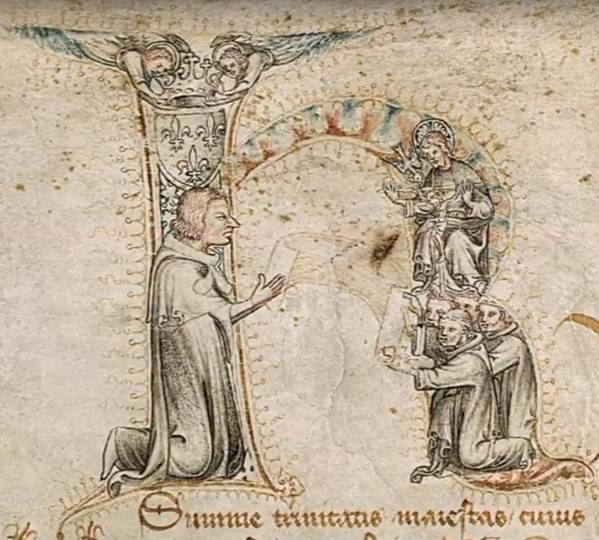 Summe trinitatis maiestas cuius